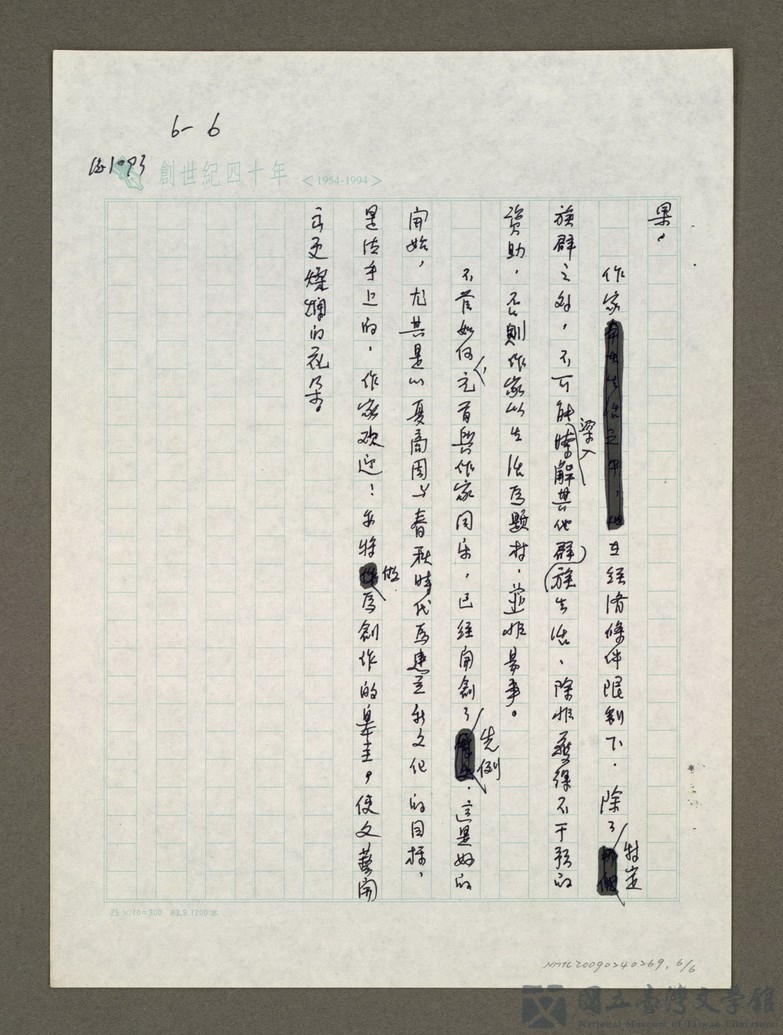 6-6
創世紀四十年 <1954-1994>
果。
作家在經濟條件限制下，除了特定
族群之外，不可能深入瞭解其他群族生活，除非獲得不干預的
資助，否則作家以生活為題材，並非易事。
不管如何，元首與作家同樂，已經開創了先例，這是好的
開始，尤其是以夏商周与春秋時代為建立新文化的目標，
是信手上的，作家欢迎！亦將做為創作的皋圭，使文藝開
出更燦爛的花朵。
25×10=300
NMTL20090240269, 6/6
國立臺灣文學館
National Museum of Taiwan Literature